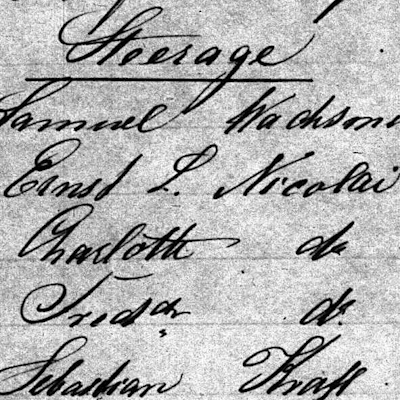 Steerage
Samuel Wachsm
Ernst L. Nicolai
Charlotte do
Fredch do
Sebastian Kraft